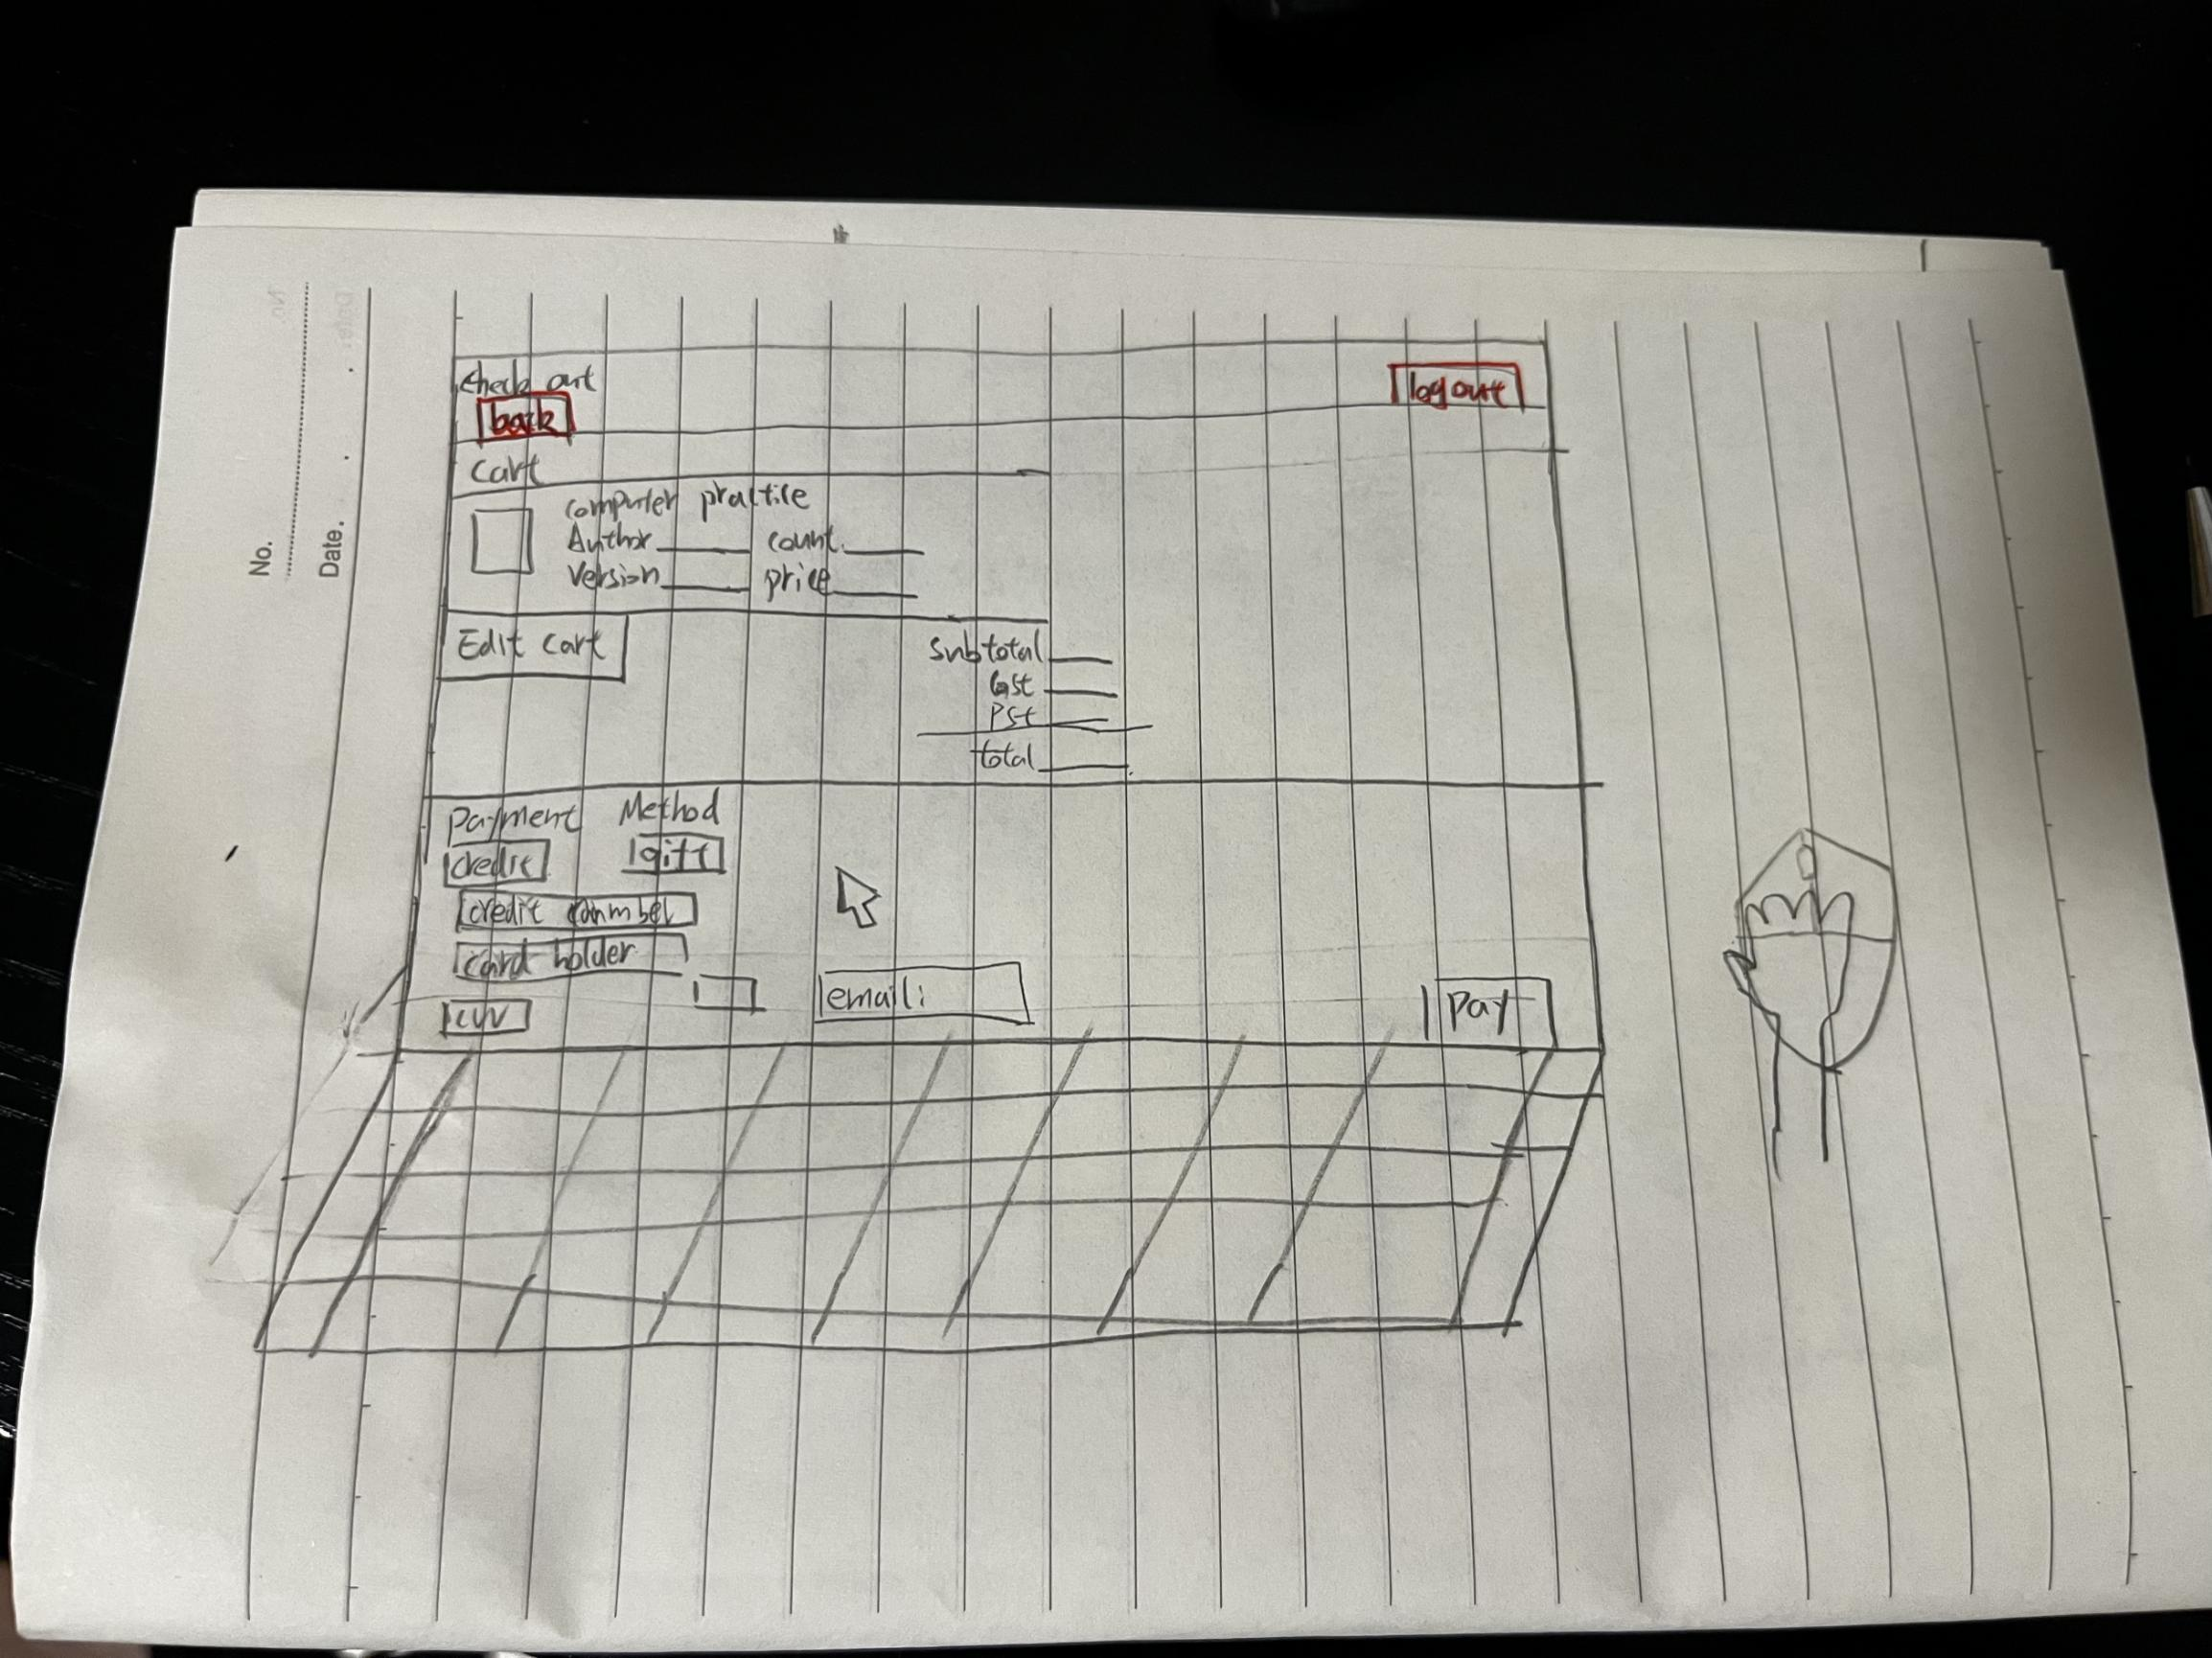 No.
Date.
Check out
back
logout
Cart
computer practice
Author count
Version price
Edit cart
Subtotal
Gst
Pst
total
Payment Method
credit gift
credit
card holder
email:
CVV
Pay